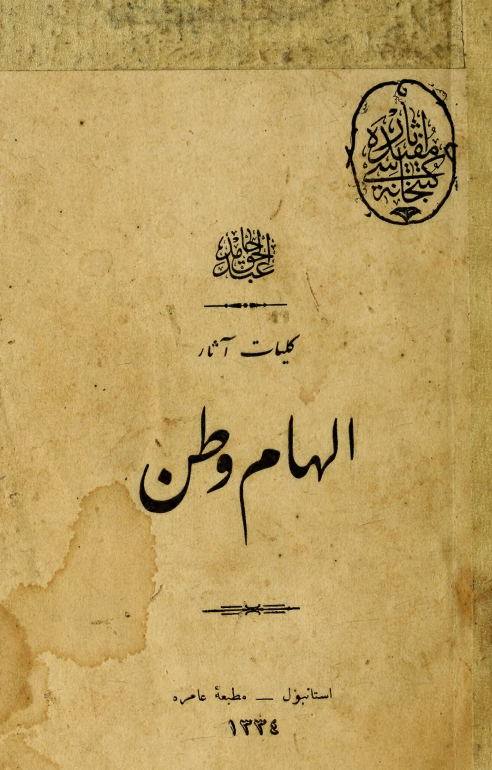 آثار مفیده كتبخانه‌سی
عبدالحق حامد
كلیات آثار
الهام وطن
استانبول — مطبعهٔ عامره
١٣٣٤